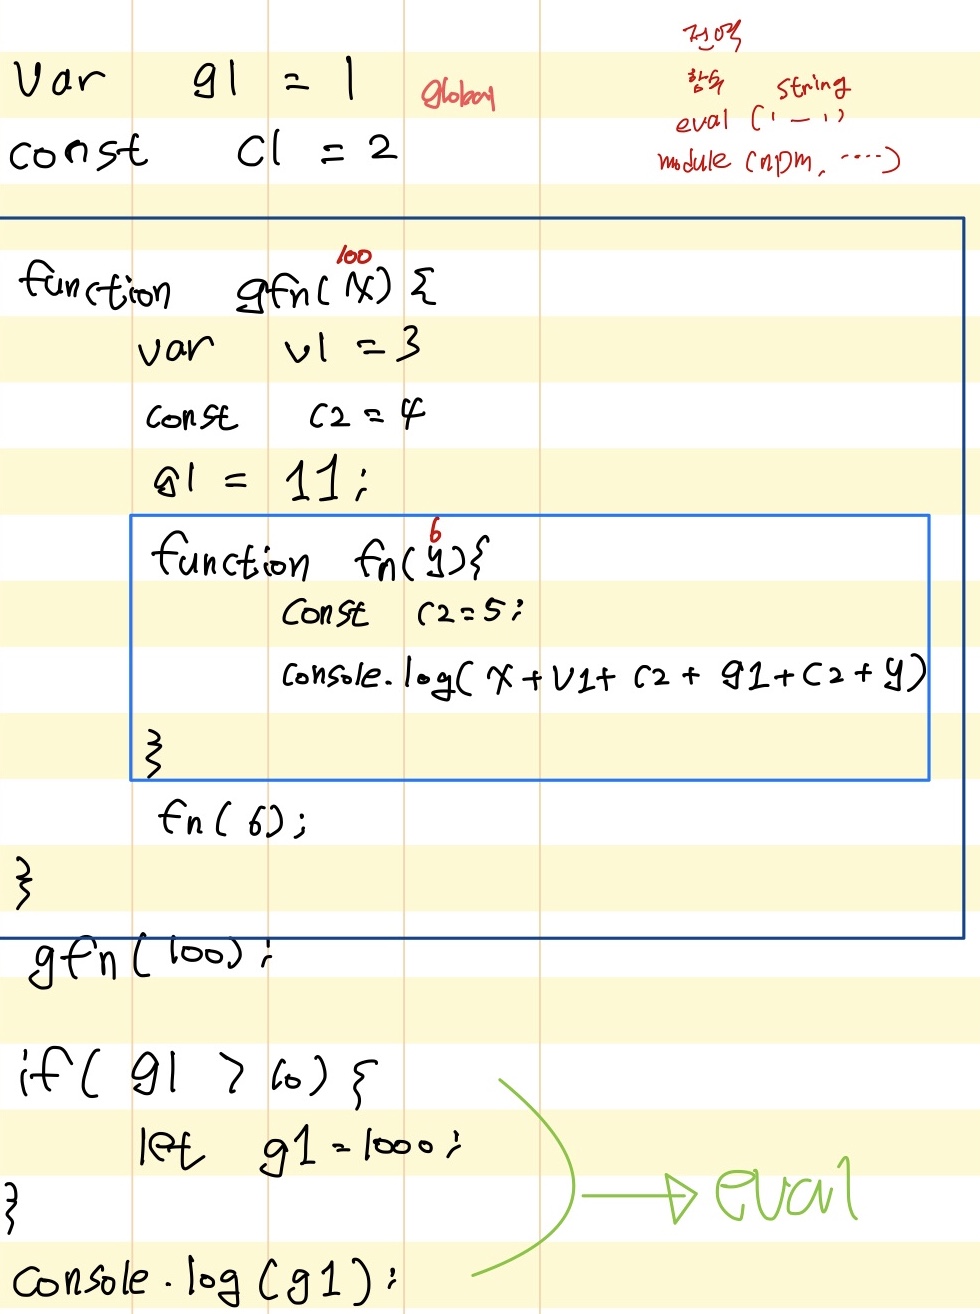 var g1 = 1
global
const c1 = 2
전역
함수 string
eval ('—')
module (npm, ....)
100
function gfn(x) {
var v1 = 3
const c2 = 4
g1 = 11;
6
function fn(y){
const c2=5;
console.log( x + v1 + c2 + g1 + c2 + y)
}
fn(6);
}
gfn(100);
if( g1 > 10) {
let g1 = 1000;
}
console.log(g1);
eval